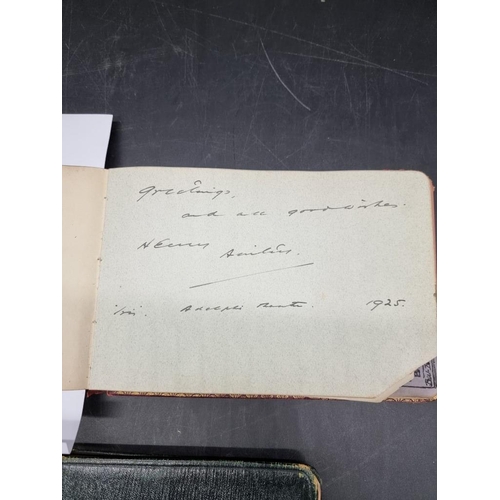 Greetings,
and all good wishes.
Henry
Ainley.
Adelphi 1925.